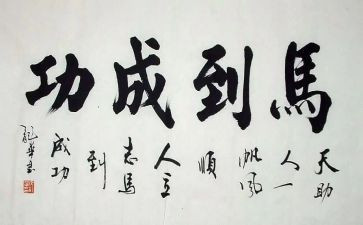 馬到成功
天助
人一
帆風
順
人立
志馬
到
成功